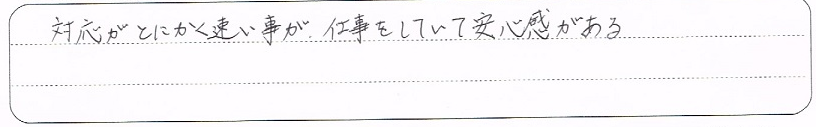 対応がとにかく速い事が、仕事をしていて安心感がある